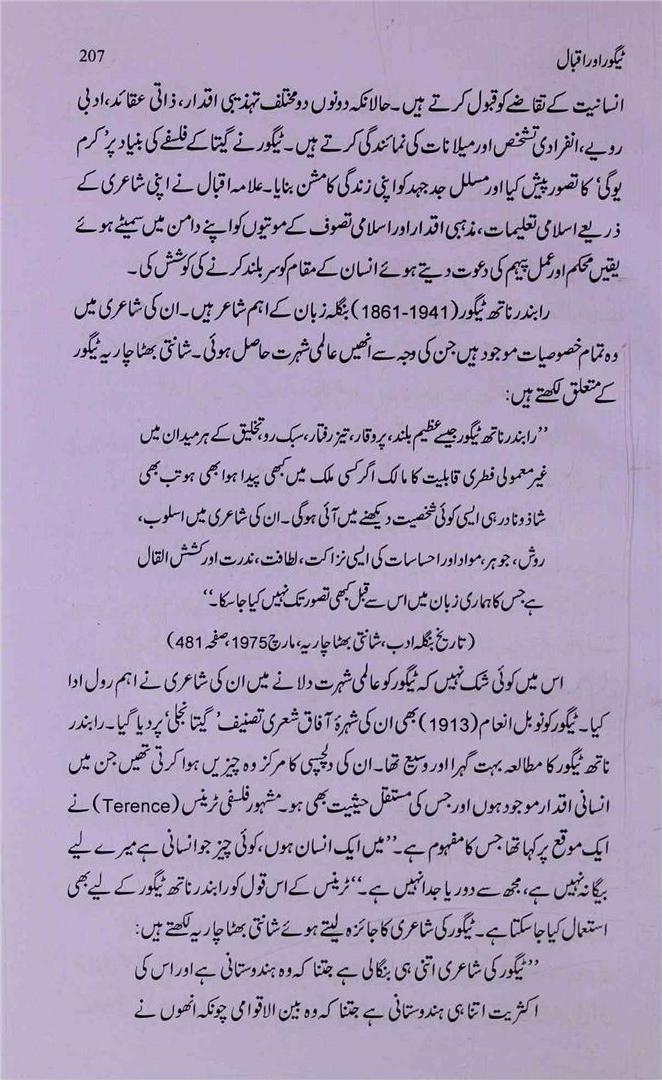 ٹیگور اور اقبال 207
انسانیت کے تقاضے کو قبول کرتے ہیں۔ حالانکہ دونوں دو مختلف تہذیبی اقدار، ذاتی عقائد، ادبی
رویے، انفرادی تشخص اور میلانات کی نمائندگی کرتے ہیں۔ ٹیگور نے گیتا کے فلسفے کی بنیاد پر ’کرم
یوگی‘ کا تصور پیش کیا اور مسلسل جدجہد کو اپنی زندگی کا مشن بنایا۔ علامہ اقبال نے اپنی شاعری کے
ذریعے اسلامی تعلیمات، مذہبی اقدار اور اسلامی تصوف کے موتیوں کو اپنے دامن میں سمیٹے ہوئے
یقیں محکم اور عمل پیہم کی دعوت دیتے ہوئے انسان کے مقام کو سربلند کرنے کی کوشش کی۔
رابندر ناتھ ٹیگور (1861-1941) بنگلہ زبان کے اہم شاعر ہیں۔ ان کی شاعری میں
وہ تمام خصوصیات موجود ہیں جن کی وجہ سے انھیں عالمی شہرت حاصل ہوئی۔ شانتی بھٹاچاریہ ٹیگور
کے متعلق لکھتے ہیں:
”رابندر ناتھ ٹیگور جیسے عظیم بلند، پروقار، تیز رفتار، سبک رو، تخلیق کے ہر میدان میں
غیر معمولی فطری قابلیت کا مالک اگر کسی ملک میں کبھی پیدا ہوا بھی ہو تب بھی
شاذ و نادر ہی ایسی کوئی شخصیت دیکھنے میں آئی ہوگی۔ ان کی شاعری میں اسلوب،
روش، جوہر، مواد اور احساسات کی ایسی نزاکت، لطافت، ندرت اور کشش القال
ہے جس کا ہماری زبان میں اس سے قبل کبھی تصور تک نہیں کیا جاسکا۔“
(تاریخ بنگلہ ادب، شانتی بھٹاچاریہ، مارچ 1975، صفحہ 481)
اس میں کوئی شک نہیں کہ ٹیگور کو عالمی شہرت دلانے میں ان کی شاعری نے اہم رول ادا
کیا۔ ٹیگور کو نوبل انعام (1913) بھی ان کی شہرۂ آفاق شعری تصنیف ’گیتانجلی‘ پر دیا گیا۔ رابندر
ناتھ ٹیگور کا مطالعہ بہت گہرا اور وسیع تھا۔ ان کی دلچسپی کا مرکز وہ چیزیں ہوا کرتی تھیں جن میں
انسانی اقدار موجود ہوں اور جس کی مستقل حیثیت بھی ہو۔ مشہور فلسفی ٹرینس (Terence) نے
ایک موقع پر کہا تھا جس کا مفہوم ہے۔ ”میں ایک انسان ہوں، کوئی چیز جو انسانی ہے میرے لیے
بیگانہ نہیں ہے، مجھ سے دور یا جدا نہیں ہے۔“ ٹرینس کے اس قول کو رابندر ناتھ ٹیگور کے لیے بھی
استعمال کیا جاسکتا ہے۔ ٹیگور کی شاعری کا جائزہ لیتے ہوئے شانتی بھٹاچاریہ لکھتے ہیں:
”ٹیگور کی شاعری اتنی ہی بنگالی ہے جتنا کہ وہ ہندوستانی ہے اور اس کی
اکثریت اتنا ہی ہندوستانی ہے جتنا کہ وہ بین الاقوامی چونکہ انھوں نے